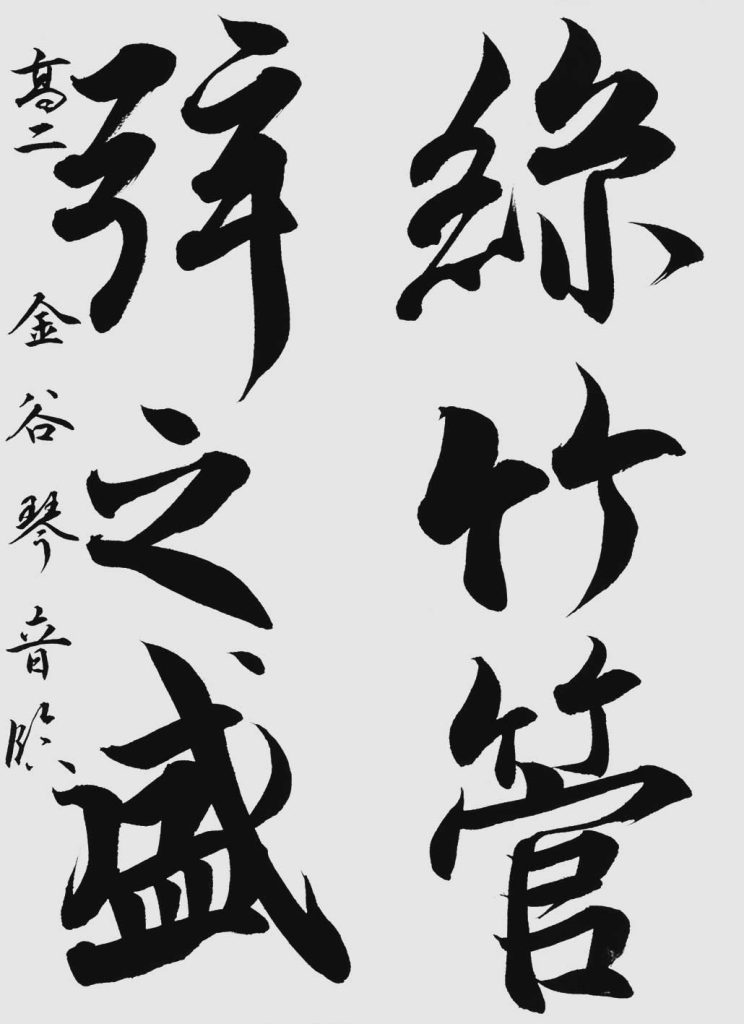 絲竹管
弦之盛
高二 金谷琴音臨